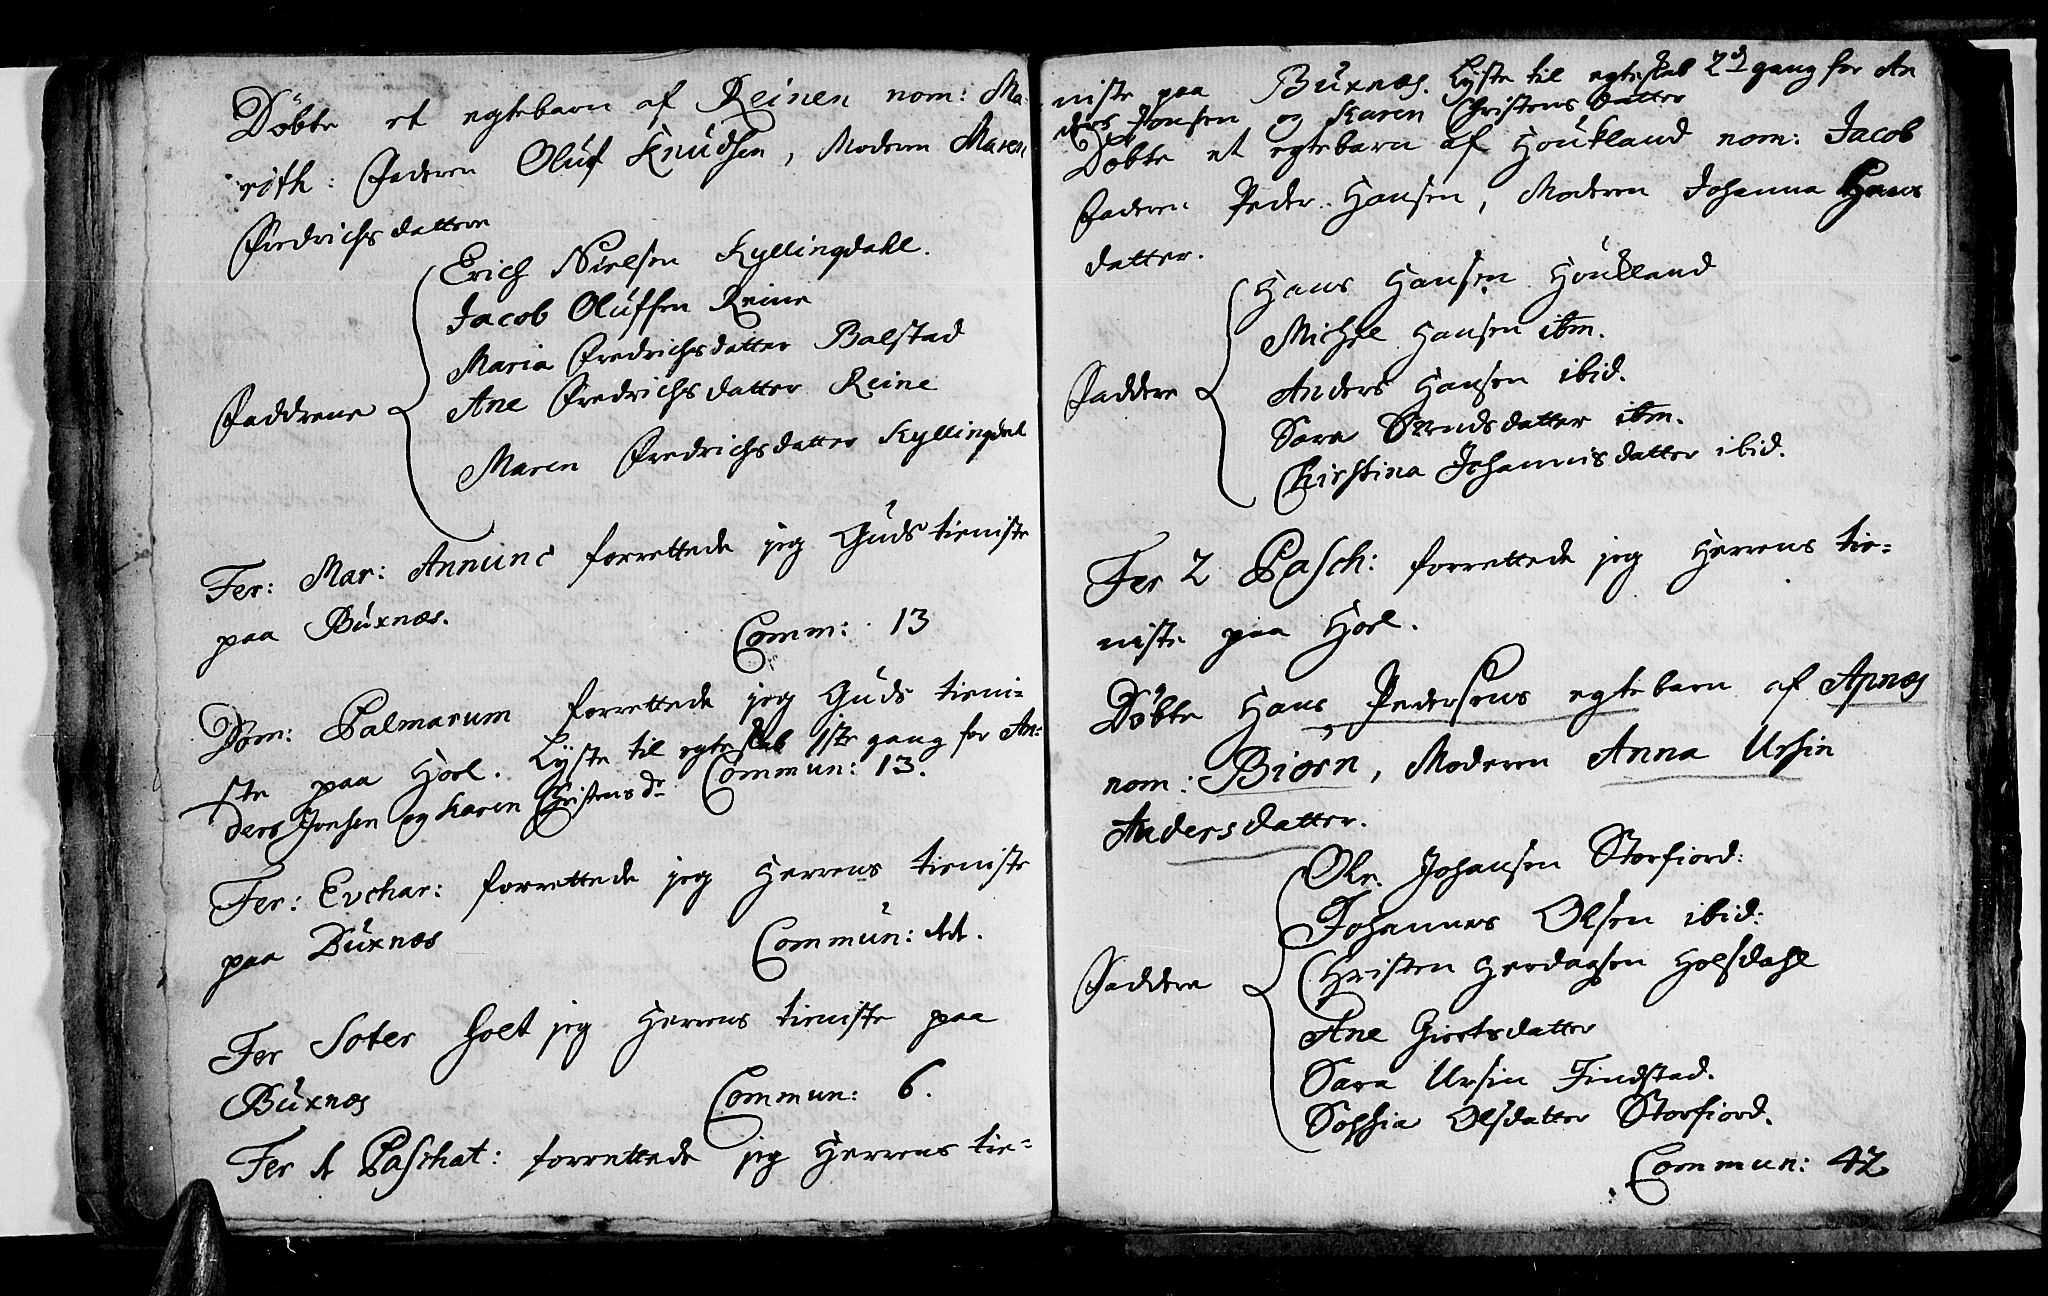 Döbte et egtebarn af Reinen nom: Ma-
rith: Faderen Oluf Knudsen, Moderen Maren
Fredrichsdatter
Erich Nielsen Kyllingdahl.
Jacob Oluffsen Reine
Maria Fredrichsdatter Balstad
Faddrene
Ane Fredrichsdatter Reine
Maren Fredrichsdatter Kyllingdal
Fer: Mar: Annunc forrettede jeg Guds tieniste
paa Buxnæs. Comm: 13
Dom: Palmarum forrettede jeg Guds tieni-
ste paa Hool. Lyste til egteskab 1ste gang for An-
ders Jonsen og Karen Christensdr Commun: 13.
Fer: Evchar: forrettede jeg Herrens tieniste
paa Buxnæs Commun: 11.
Fer Soter holt jeg Herrens tieniste paa
Buxnæs Commun: 6.
Fer 1 Paschat: forrettede jeg Herrens tie-
niste paa Buxnæs. Lyste til egteskab 2d gang for An
ders Jonsen og Karen Christens datter
Döbte et egtebarn af Houkland nom: Jacob
Faderen Peder Hansen, Moderen Johanna Hans
datter.
Hans Hansen Houkland
Michel Hansen itm.
Faddere
Anders Hansen ibid.
Sara datter itm.
Christina Johannisdatter ibid.
Fer 2 Pasch: forrettede jeg Herrens tie-
niste paa Hool.
Döbte Hans Pedersens egtebarn af Apnæs
nom: Biørn, Moderen Anna Ursin
Andersdatter.
Ole Johansen Storfiord:
Johannes Olsen ibid:
Christen Herdagsen Holsdahl
Faddere
Ane Giertsdatter
Sara Ursin Findstad.
Sophia Olsdatter Storfiord.
Commun: 42